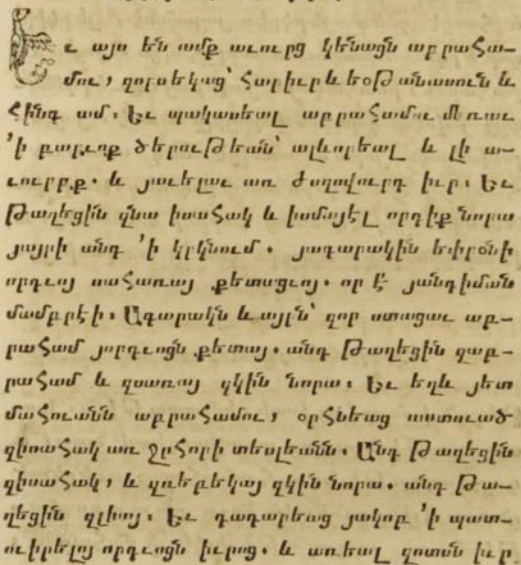 Եւ այս են ամք աւուրց կենացն աբրահա-
մու, զորս եկաց՝ Հարիւր և եօԹանասուն և
Հինգ ամ. Եւ պակասեալ աբրահամու մեռաւ
՚ի բարւոք ծերուԹեան՝ ալևորեալ և լի ա-
ւուրբք. և յաւելաւ առ ժողովուրդ իւր. Եւ
Թաղեցին զնա իսահակ և իսմայէլ որդիք նորա
յայրի անդ ՚ի կրկնում. յագարակին եփրօնի
որդւոյ սահառայ քետացւոյ. որ է յանդիման
մամբրէի. Ագարակն և այլն՝ զոր ստացաւ աբ-
րահամ յորդւոցն քետայ. անդ Թաղեցին զաբ-
րահամ և զսառայ զկին նորա. Եւ եղև յետ
մահուանն աբրահամու, օրհնեաց աստուած
զիսահակ առ ջրհորի տեսլեանն. Անդ Թաղեցին
զիսահակ, և զռեբեկայ զկին նորա. անդ Թա-
ղեցին զլիայ. Եւ դադարեաց յակոբ ՚ի պատ-
ուիրելոյ որդւոցն իւրոց. և առեալ զոտսն իւր